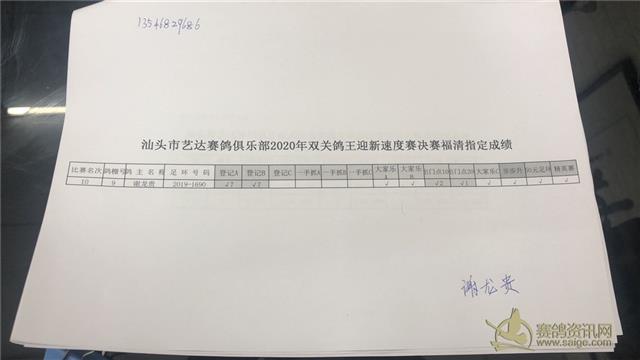 13546829686
汕头市艺达赛鸽俱乐部2020年双关鸽王迎新速度赛决赛福清指定成绩
比赛名次 鸽棚号 鸽主名称 足环号码 登记A 登记B 登记C 一手抓A 一手抓B 一手抓C 大家乐A 大家乐B 大家乐C 步步升 50元足环 精英赛
10 9 谢龙贵 2019-1690 √7 √7 √ √ √2 √1 √ √ √ √
谢龙贵
赛鸽资讯网
www.saige.com